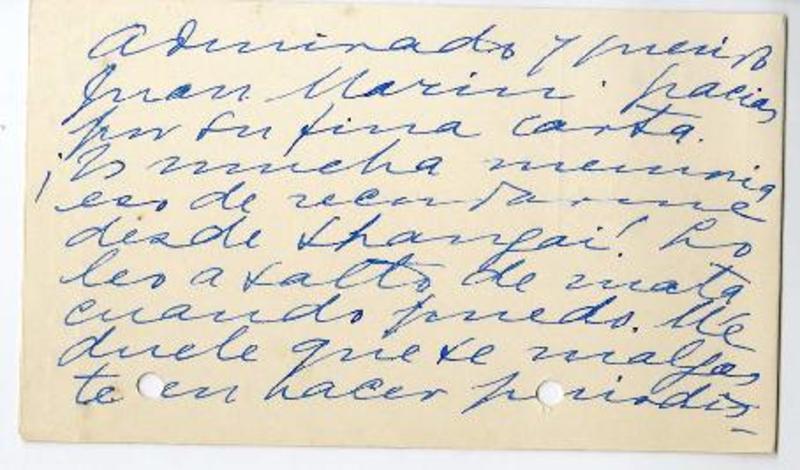 Admirado y querido
Juan Marin: gracias
por su fina carta.
¡Es mucha memoria
eso de recordarme
desde Shangai! Lo
leo a salto de mata
cuando puedo. Me
duele que se malgas
te en hacer periodis-